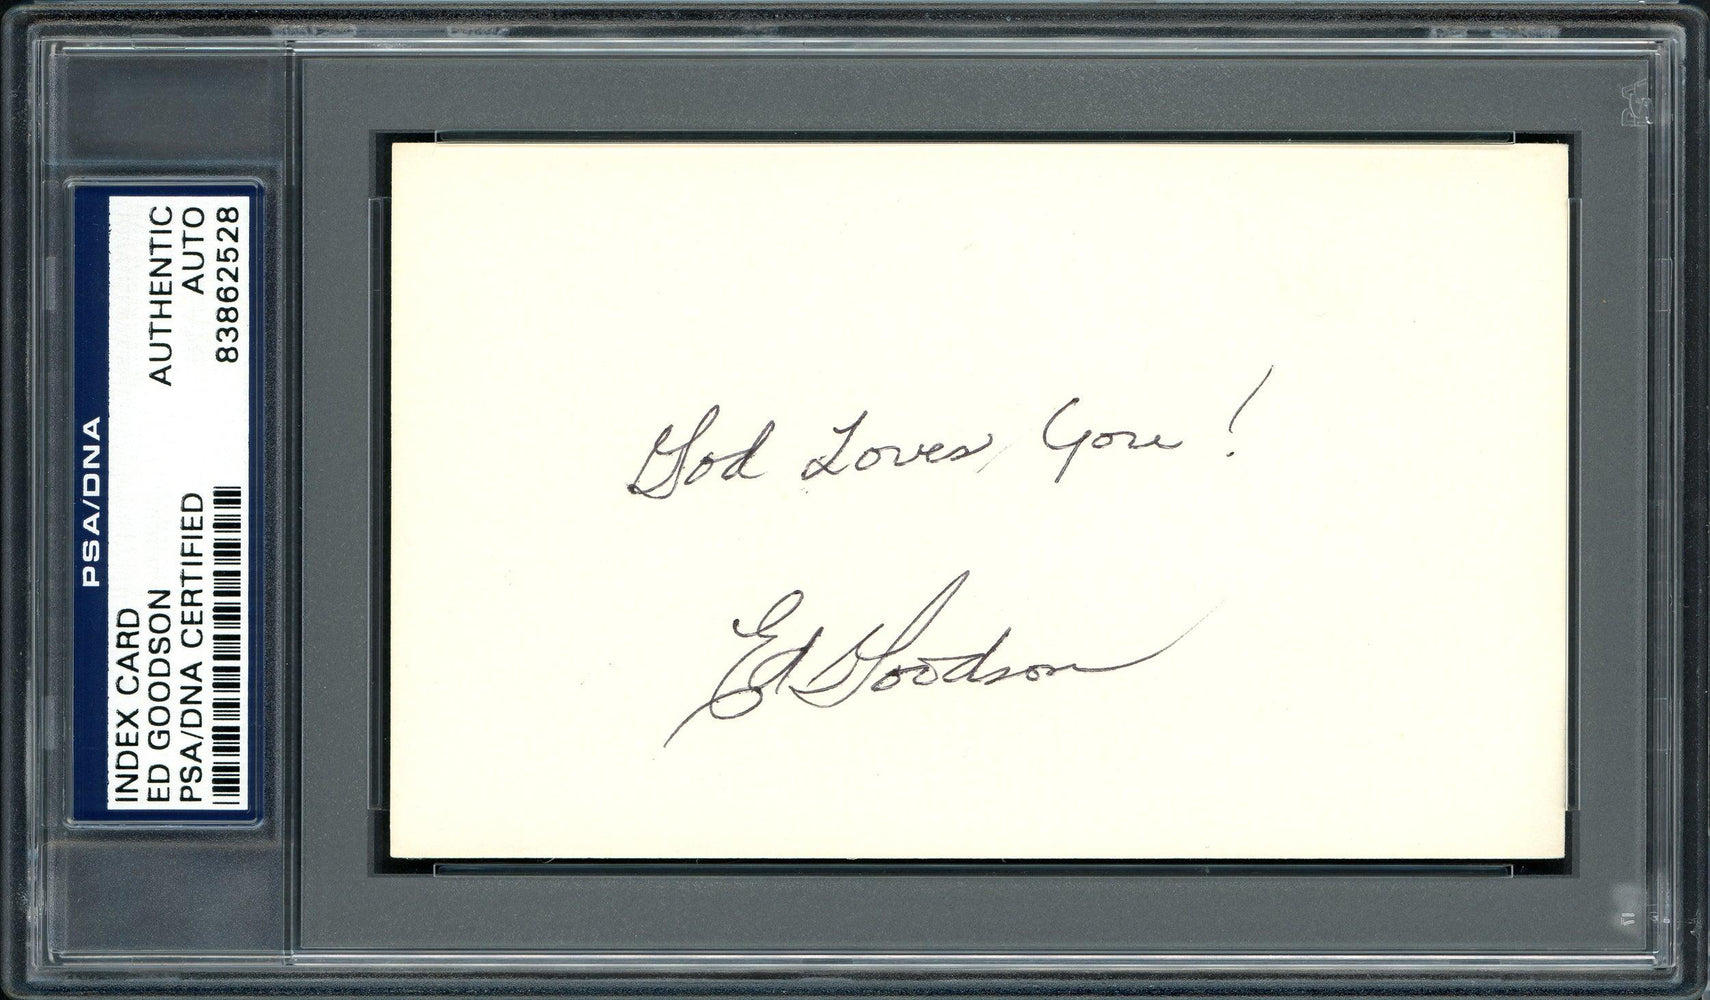 PSA/DNA
INDEX CARD AUTHENTIC
ED GOODSON AUTO
PSA/DNA CERTIFIED 83862528
God Loves You!
Ed Goodson
PSA